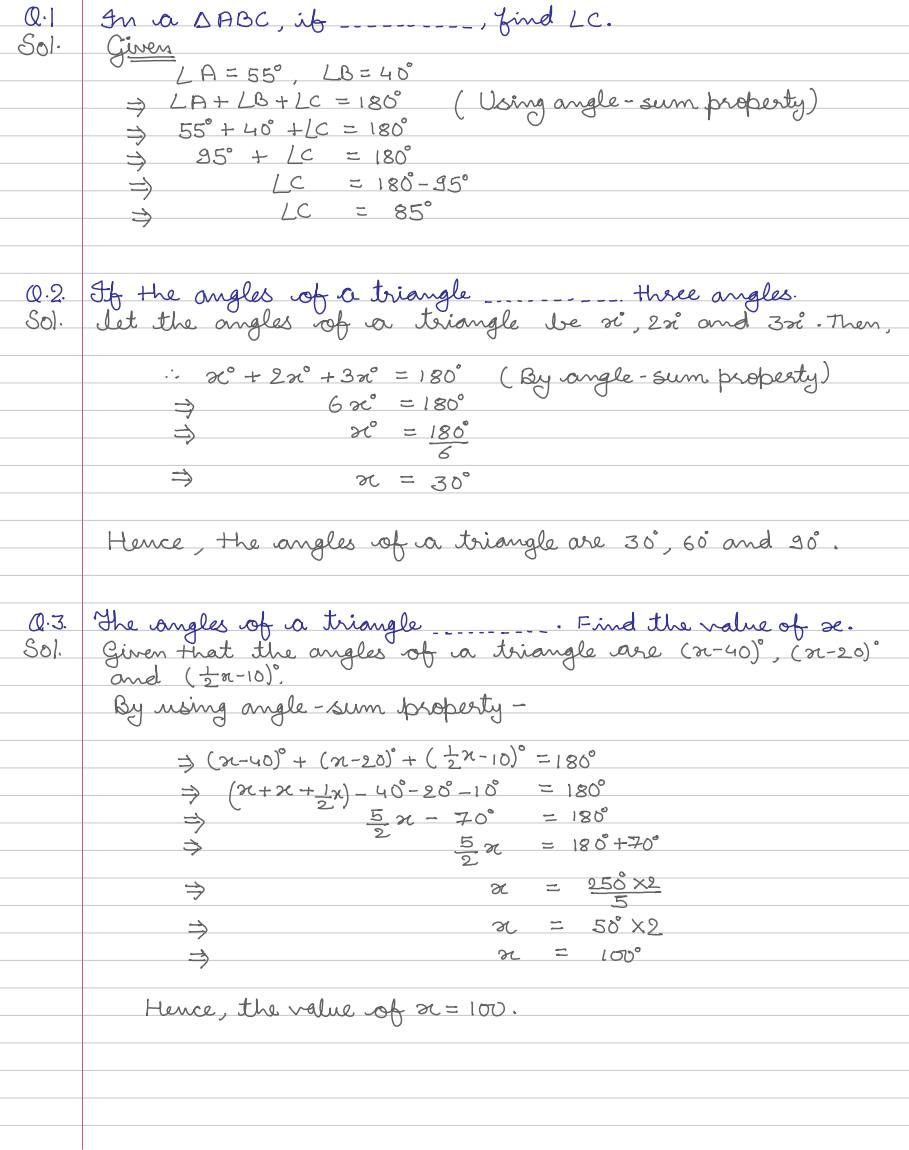 Q.1 In a ΔABC, if ----------, find ∠C.
Sol. Given
∠A = 55°, ∠B = 40°
⇒ ∠A + ∠B + ∠C = 180° (Using angle-sum property)
⇒ 55° + 40° + ∠C = 180°
⇒ 95° + ∠C = 180°
⇒ ∠C = 180° - 95°
⇒ ∠C = 85°
Q.2. If the angles of a triangle ---------- three angles.
Sol. let the angles of a triangle be x°, 2x° and 3x°. Then,
∴ x° + 2x° + 3x° = 180° (By angle-sum property)
⇒ 6x° = 180°
⇒ x° = 180°/6
⇒ x = 30°
Hence, the angles of a triangle are 30°, 60° and 90°.
Q.3. The angles of a triangle ----------. Find the value of x.
Sol. Given that the angles of a triangle are (x-40)°, (x-20)°
and (1/2x-10)°.
By using angle-sum property -
⇒ (x-40)° + (x-20)° + (1/2x-10)° = 180°
⇒ (x+x+1/2x) - 40° - 20° - 10° = 180°
⇒ 5/2x - 70° = 180°
⇒ 5/2x = 180° + 70°
⇒ x = 250°×2/5
⇒ x = 50° × 2
⇒ x = 100°
Hence, the value of x = 100.